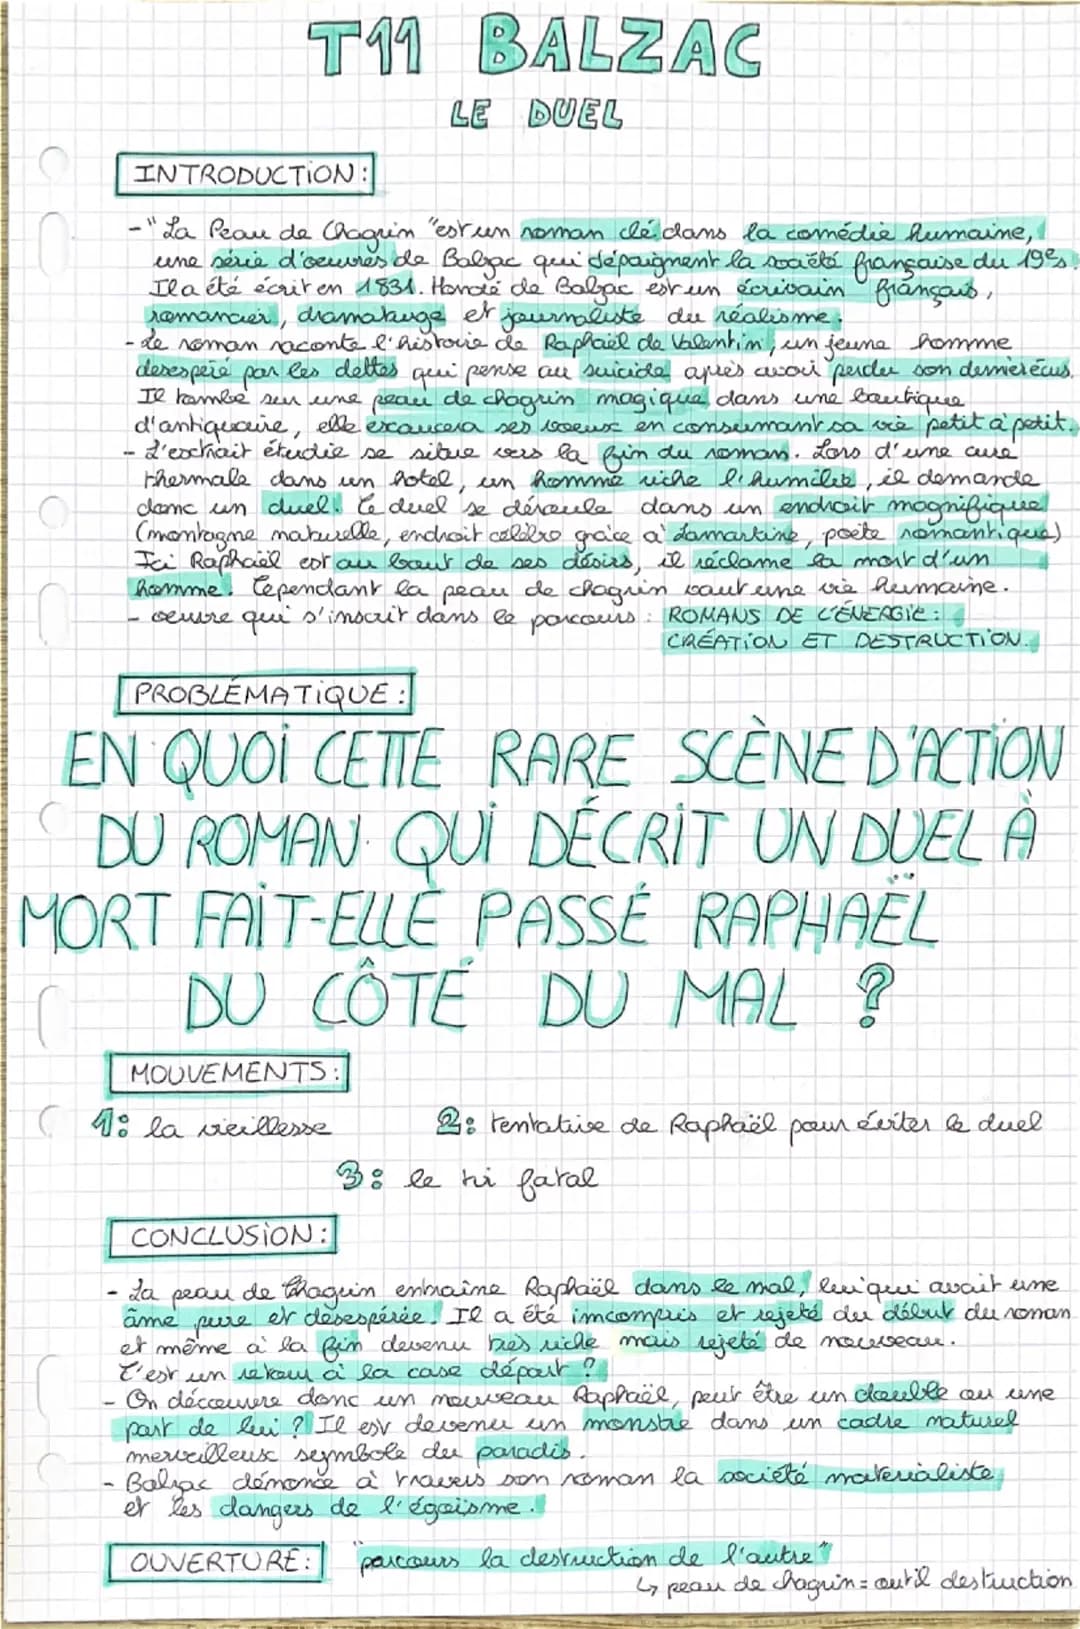 T11 BALZAC
LE DUEL
INTRODUCTION:
- "La Peau de Chagrin" est un roman clé dans la comédie humaine,
une série d'oeuvres de Balzac qui dépaignent la société française du 19es.
Il a été écrit en 1831. Honoré de Balzac est un écrivain français,
romancier, dramaturge et journaliste du réalisme.
- Le roman raconte l'histoire de Raphaël de Valentin, un jeune homme
desespéré par les dettes qui pense au suicide après avoir perdu son dernier écus.
Il tombe sur une peau de chagrin magique dans une boutique
d'antiquaire, elle exaucera ses voeux en consumant sa vie petit à petit.
- L'extrait étudié se situe vers la fin du roman. Lors d'une cure
thermale dans un hotel, un homme riche l'humilie, il demande
donc un duel. Ce duel se déroule dans un endroit magnifique
(montagne naturelle, endroit célèbre grâce à Lamartine, poète romantique)
Ici Raphaël est au bout de ses désirs, il réclame la mort d'un
homme. Cependant la peau de chagrin vaut une vie humaine.
- oeuvre qui s'inscrit dans le parcours : ROMANS DE L'ÉNERGIE:
CRÉATION ET DESTRUCTION.
PROBLÉMATIQUE:
EN QUOI CETTE RARE SCÈNE D'ACTION
DU ROMAN QUI DÉCRIT UN DUEL À
MORT FAIT-ELLE PASSÉ RAPHAËL
DU CÔTÉ DU MAL ?
MOUVEMENTS:
1: la vieillesse 2: tentative de Raphaël pour éviter le duel
3: le tir fatal
CONCLUSION:
- La peau de Chagrin entraîne Raphaël dans le mal, lui qui avait une
âme pure et désespérée. Il a été imcompris et rejeté du début du roman
et même à la fin devenu très riche mais rejeté de nouveau.
C'est un retour à la case départ ?
- On découvre donc un nouveau Raphaël, peut être un double ou une
part de lui ? Il est devenu un monstre dans un cadre naturel
merveilleux symbole du paradis.
- Balzac dénonce à travers son roman la société materialiste
et les dangers de l'égoïsme.
OUVERTURE: "parcours la destruction de l'autre"
↳ peau de chagrin = outil destruction